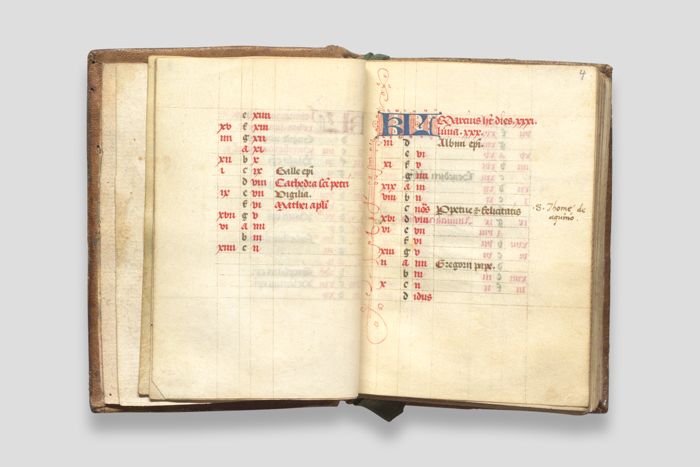 e xiiii
xv f xiii
iiii g xii
A xi
xii b x
i c ix Galle epi
d viii Cathedra sci petri
ix e vii Vigilia.
f vi Mathei apli
xvii g v
vi A iiii
b iii
xiiii c ii
4
KL Marcius ht dies. xxxi.
luna. xxx.
iii d Albini epi.
e vi
xi f v
g iiii
xix A iii
viii b ii
c nos Ppetue & felicitatis
xvi d viii
v e vii
f vi
xiii g v
ii A iiii Gregorii pape.
b iii
x c ii
d idus
S. Thome de
aquino